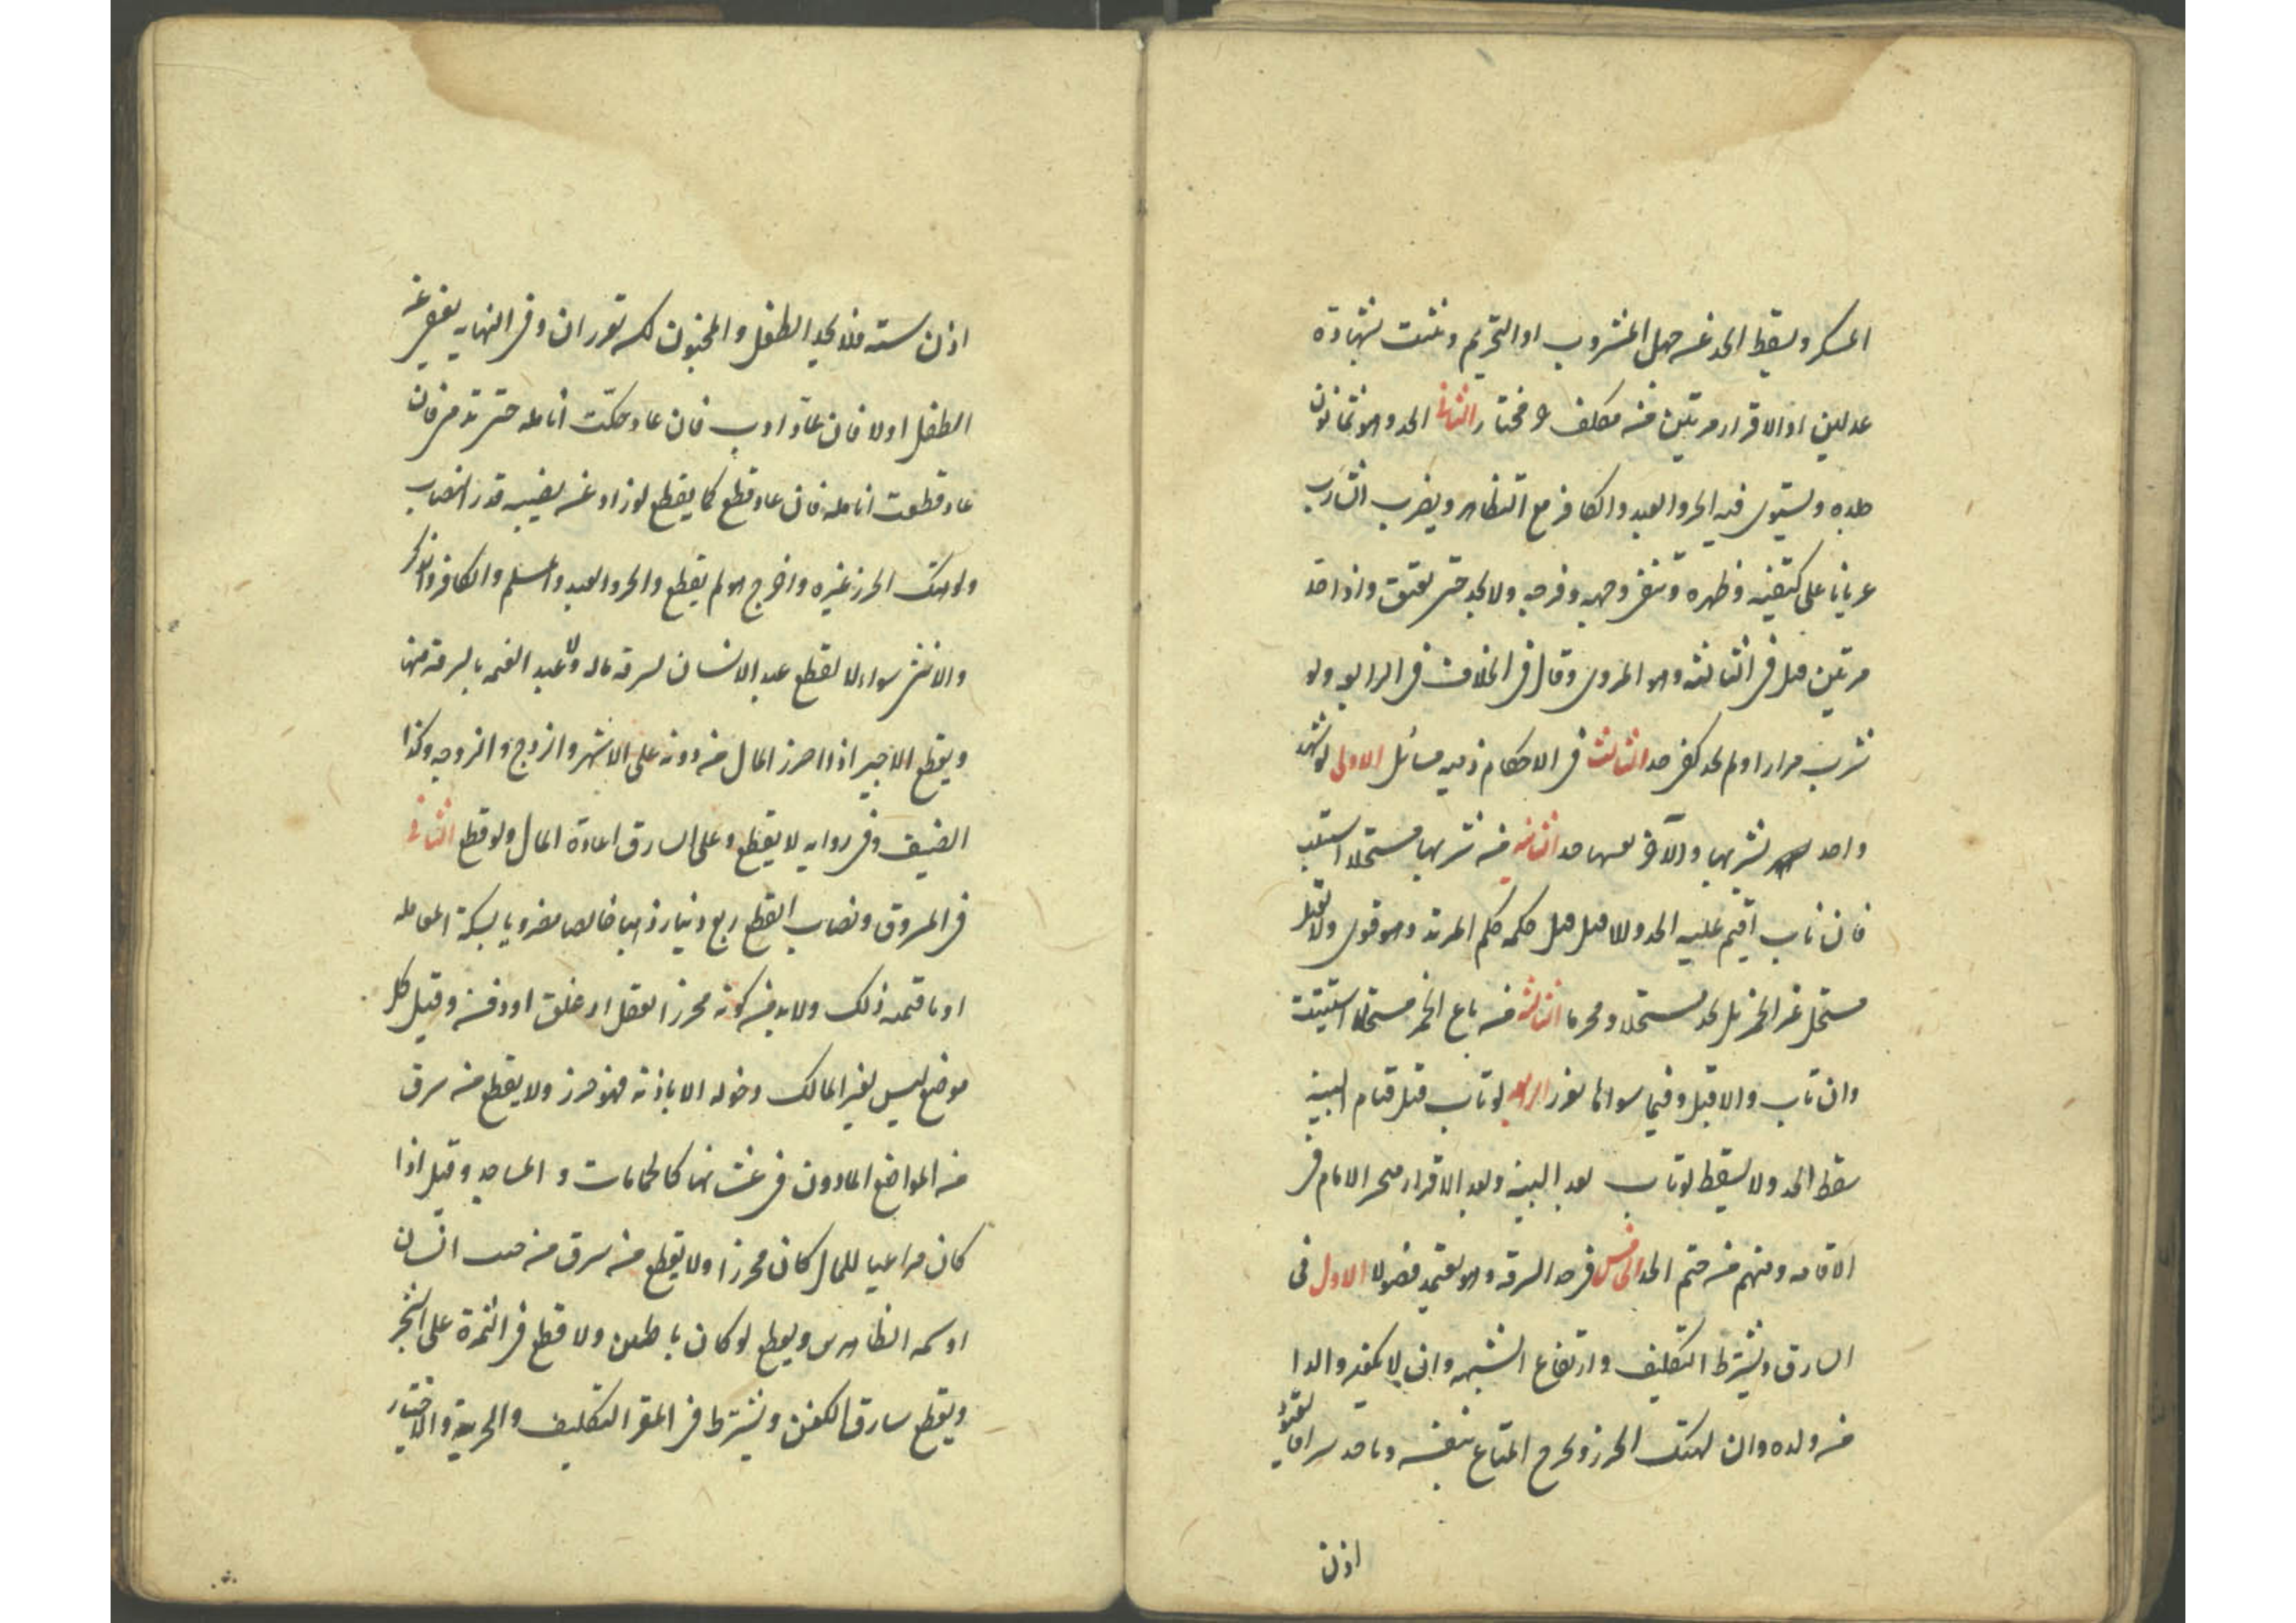 المسكر ويسقط الحد عمن جهل المشروب او التحريم ويثبت بشهادة
عدلين او الاقرار مرتين من مكلف حر مختار الثانى الحد وهو ثمانون
جلده ويستوى فيه الحر والعبد والكافر مع التظاهر ويضرب الشارب
عريانا على كتفيه وظهره ويتقى وجهه وفرجه ولا يحد حتى يفيق واذا حد
مرتين قتل فى الثالثه وهو المروى وقال فى الخلاف فى الرابعه ولو
شرب مرارا ولم يحد كفى حد الثالث فى الاحكام وفيه مسائل الاولى لو شهد
واحد بشربها والآخر بقيها حد الثانيه من شربها مستحلا استتيب
فان تاب اقيم عليه الحد والا قتل وقيل حكمه حكم المرتد وهو قوى ولا يقتل
مستحل غير الخمر بل يحد مستحلا ومحرما الثالثه من باع الخمر مستحلا استتيب
وان تاب والا قتل وفيما سواها يعزر الرابعه لو تاب قبل قيام البينه
سقط الحد ولا يسقط لو تاب بعد البينه وبعد الاقرار يتخير الامام فى
الاقامه ومنهم من حتم الحد الخامس فى حد السرقه وهو يعتمد فصولا الاول فى
السارق ويشترط التكليف وارتفاع الشبهه وان لا يكون والدا
من ولده وان يهتك الحرز ويخرج المتاع بنفسه وياخذ سرا فالقيود
اذن
اذن سته فلا يحد الطفل والمجنون لكن يعزران وفى النهايه يعفى عن
الطفل اولا فان عاد ادب فان عاد حكت انامله حتى تدمى فان
عاد قطعت انامله فان عاد قطع كما يقطع لو زاد عن نصيبه قدر النصاب
ولو هتك الحرز غيره واخرج هو لم يقطع والحر والعبد والمسلم والكافر والذكر
والانثى سواء لا يقطع عبد الانسان بسرقة ماله ولا عبد الغنيمه بالسرقه منها
ويقطع الاجير اذا احرز المال من دونه على الاشهر والزوج والزوجه وكذا
الضيف وفى روايه لا يقطع وعلى السارق اعادة المال ولو قطع الثانى
فى المسروق ونصاب القطع ربع دينار ذهبا خالصا مضروبا بسكة المعامله
او ما قيمته ذلك ولابد من كونه محرزا بقفل او غلق او دفن وقيل كل
موضع ليس لغير المالك دخوله الا باذنه فهو حرز ولا يقطع من سرق
من المواضع الماذون فى غشيانها كالحمامات و المساجد وقيل اذا
كان مراعيا للمال كان محرزا ولا يقطع من سرق من جيب انسان
او كمه الظاهرين ويقطع لو كان باطنين ولا قطع فى الثمرة على الشجر
ويقطع سارق الكفن ويشترط فى المقر التكليف والحرية والاختيار